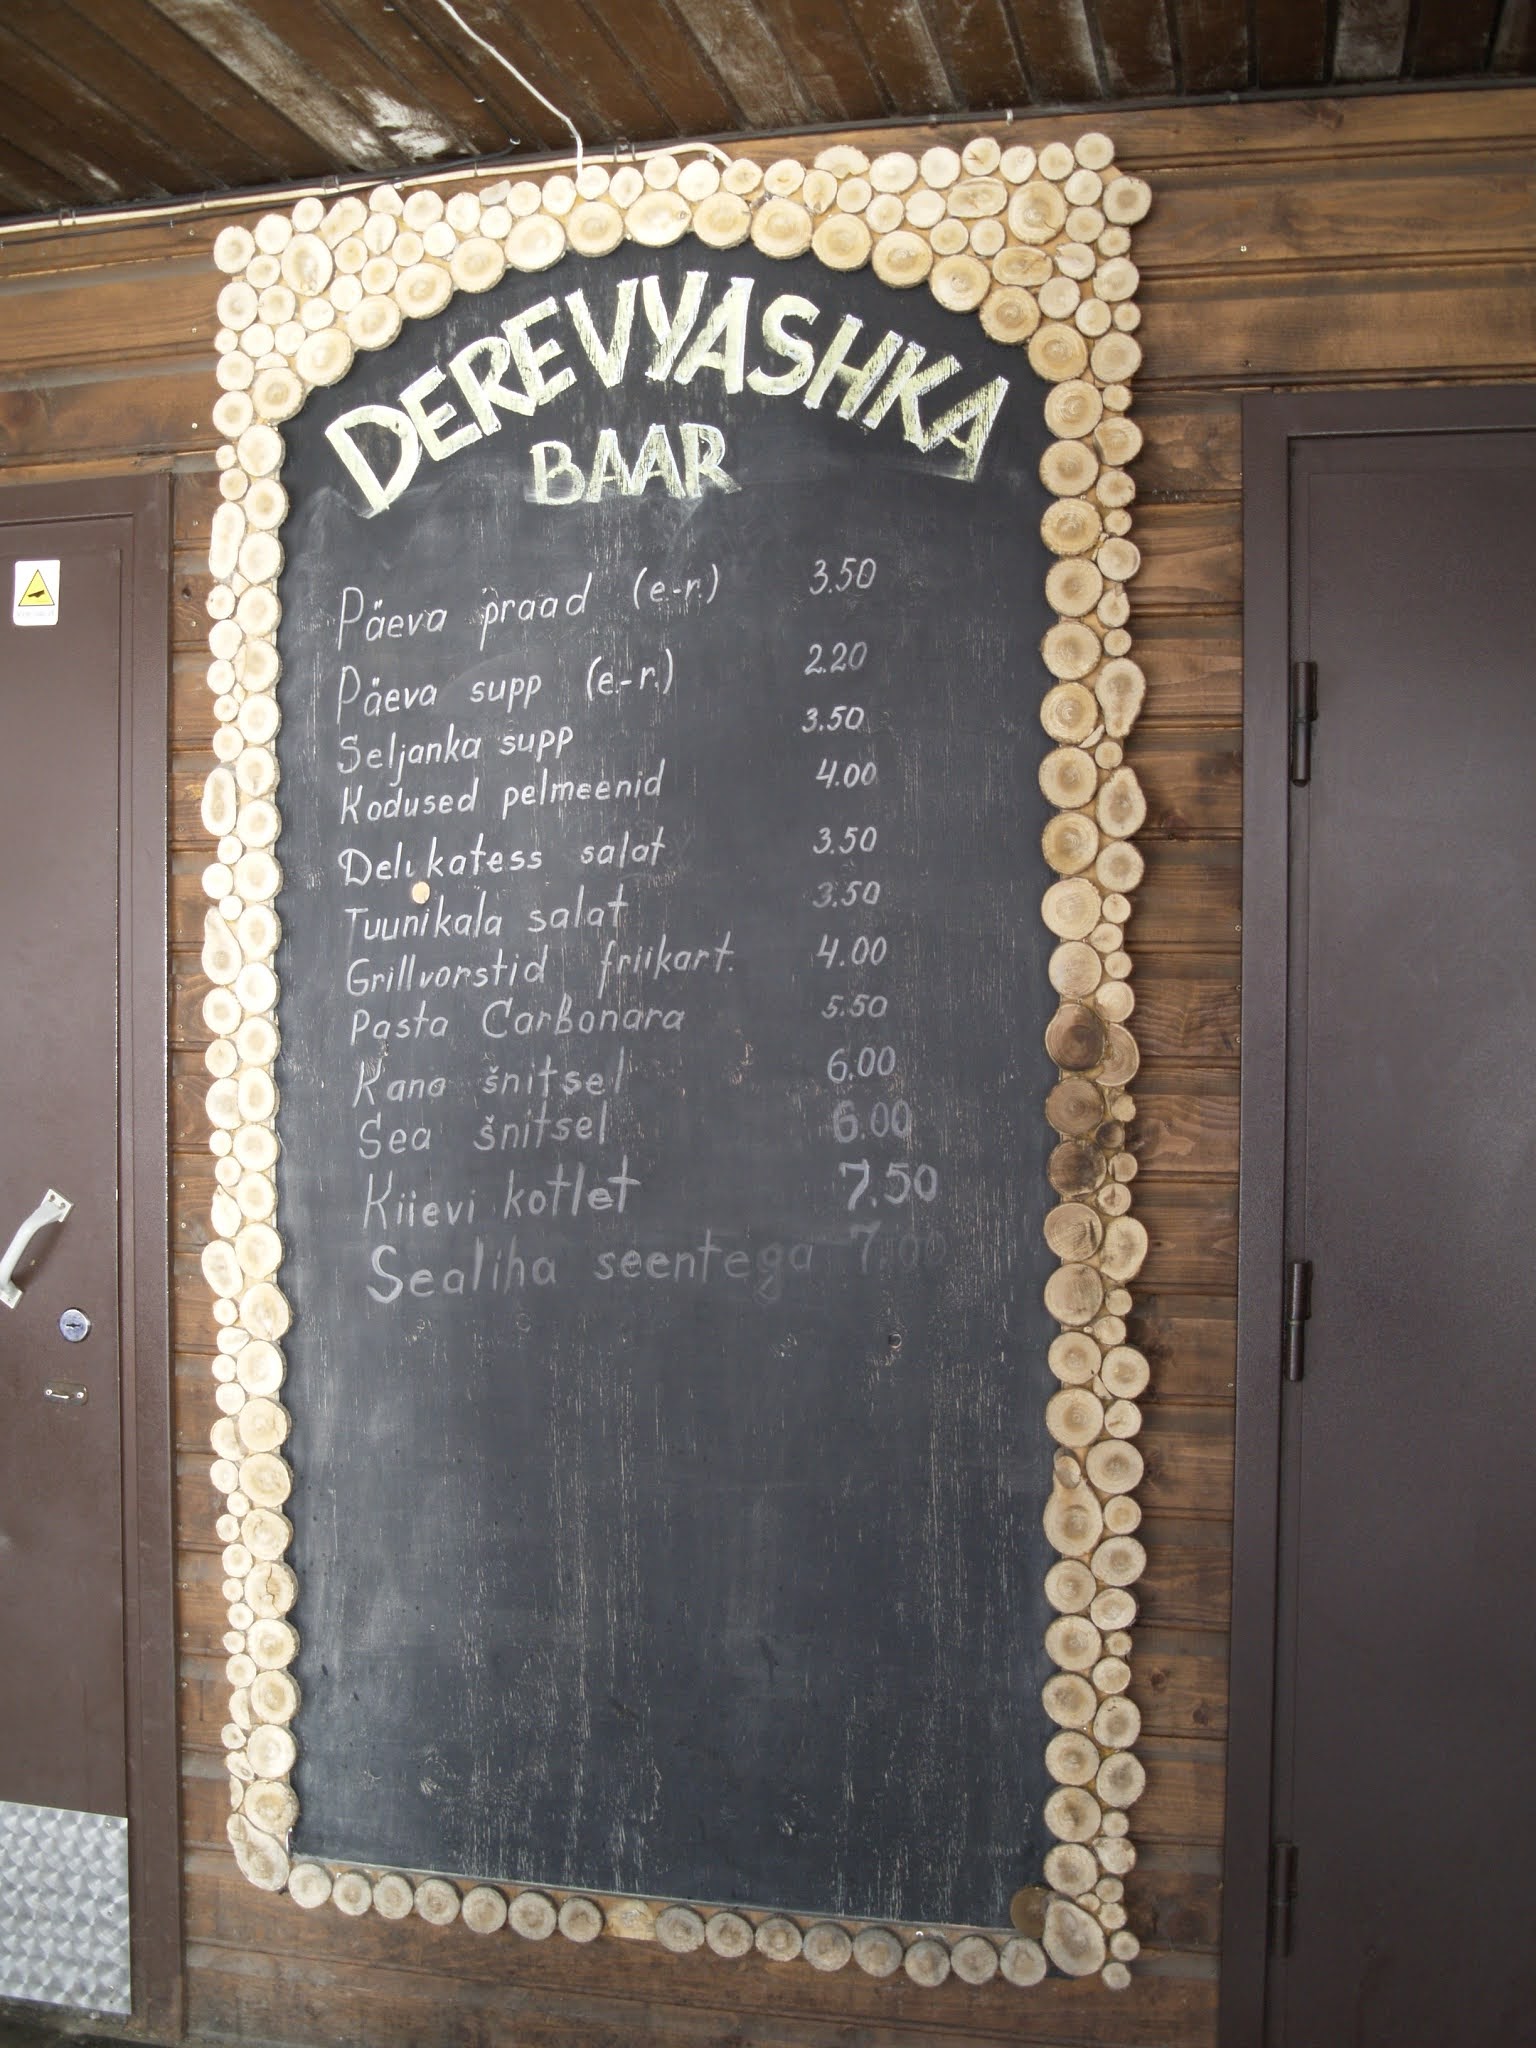 DEREVYASHKA
BAAR
Päeva praad (e-r.) 3.50
Päeva supp (e.-r.) 2.20
Seljanka supp 3.50
Kodused pelmeenid 4.00
Delikatess salat 3.50
Tuunikala salat 3.50
Grillvorstid friikart. 4.00
Pasta Carbonara 5.50
Kana šnitsel 6.00
Sea šnitsel 6.00
Kiievi kotlet 7.50
Sealiha seentega 7.00